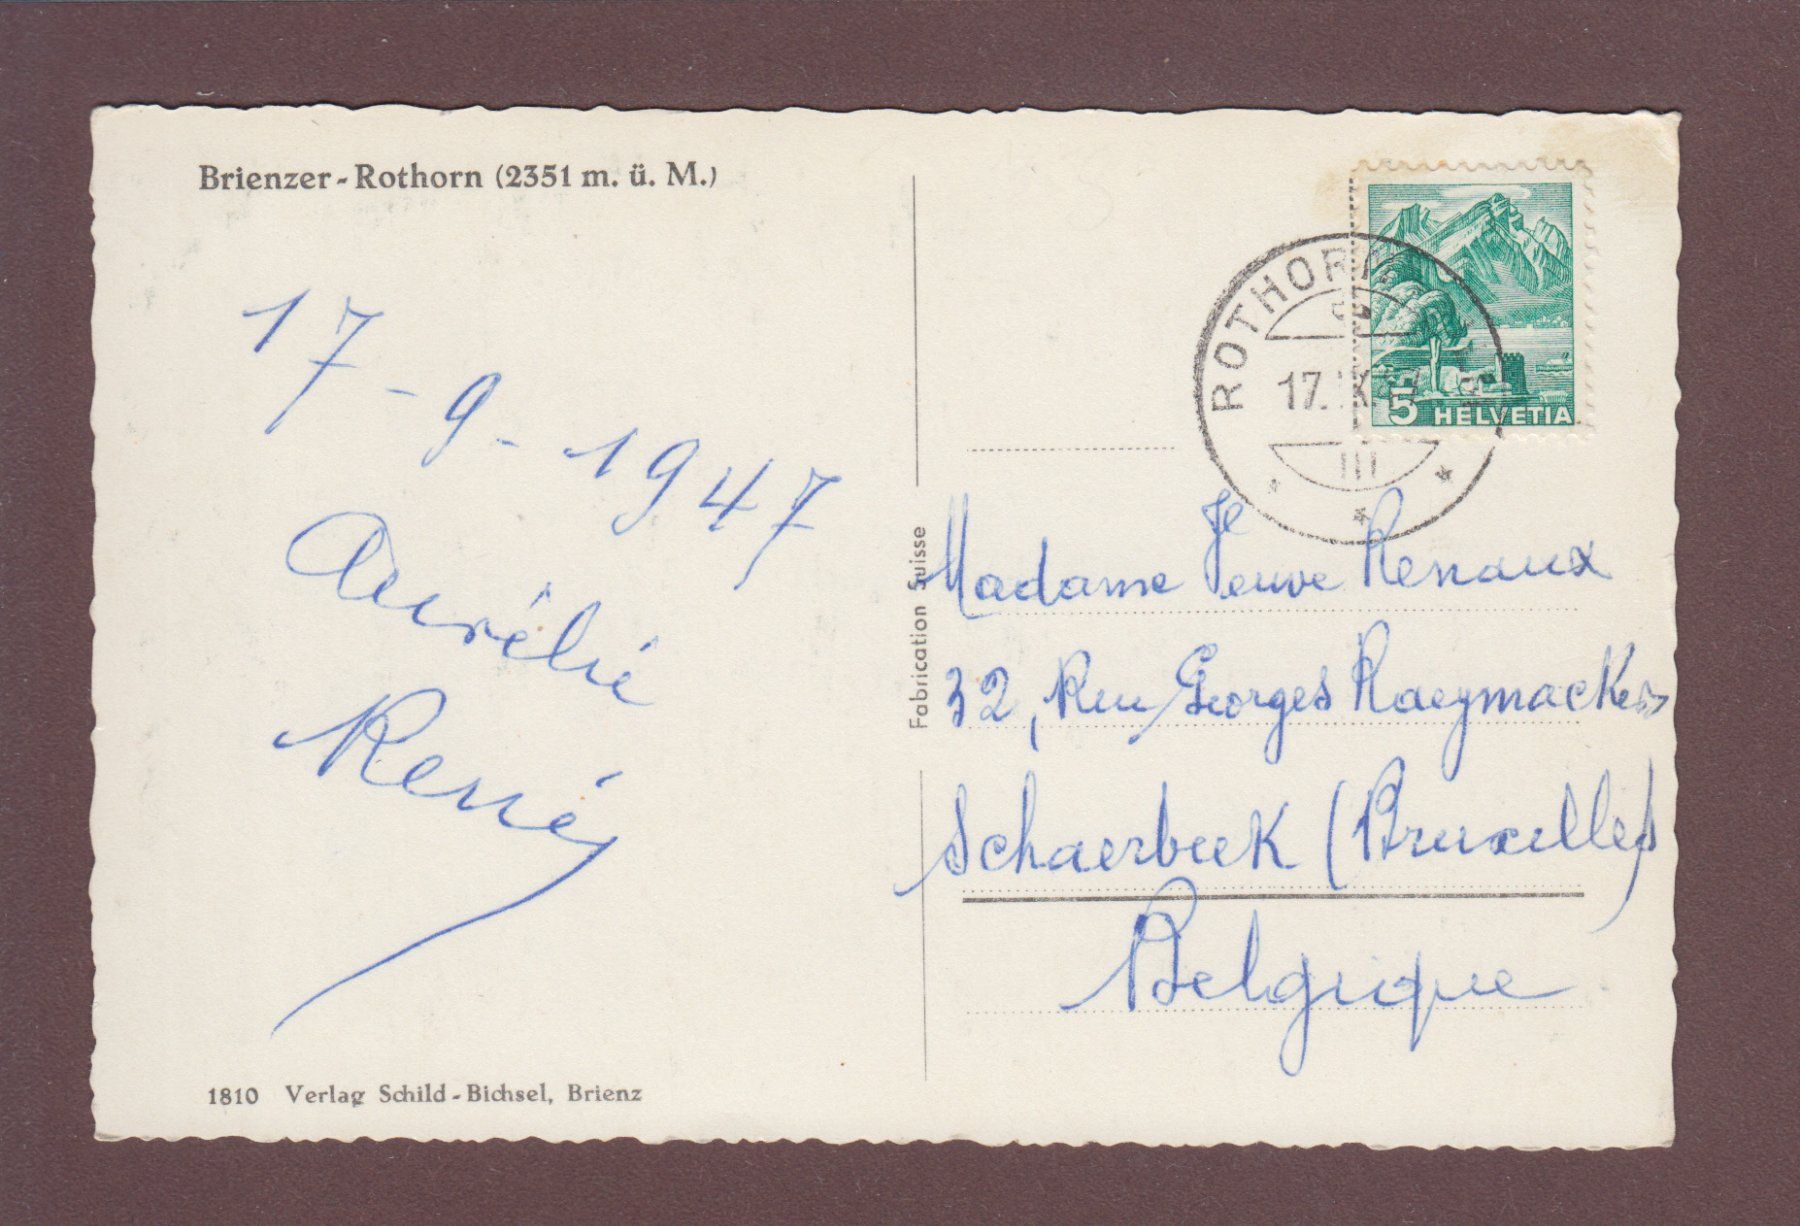 Brienzer-Rothorn (2351 m. ü. M.)
17-9-1947
Aurélie
René
1810 Verlag Schild-Bichsel, Brienz
Fabrication Suisse
ROTHORN
17. IX.
5 HELVETIA
Madame Veuve Renaux
32, Rue Georges Raeymackers
Schaerbeek (Bruxelles)
Belgique